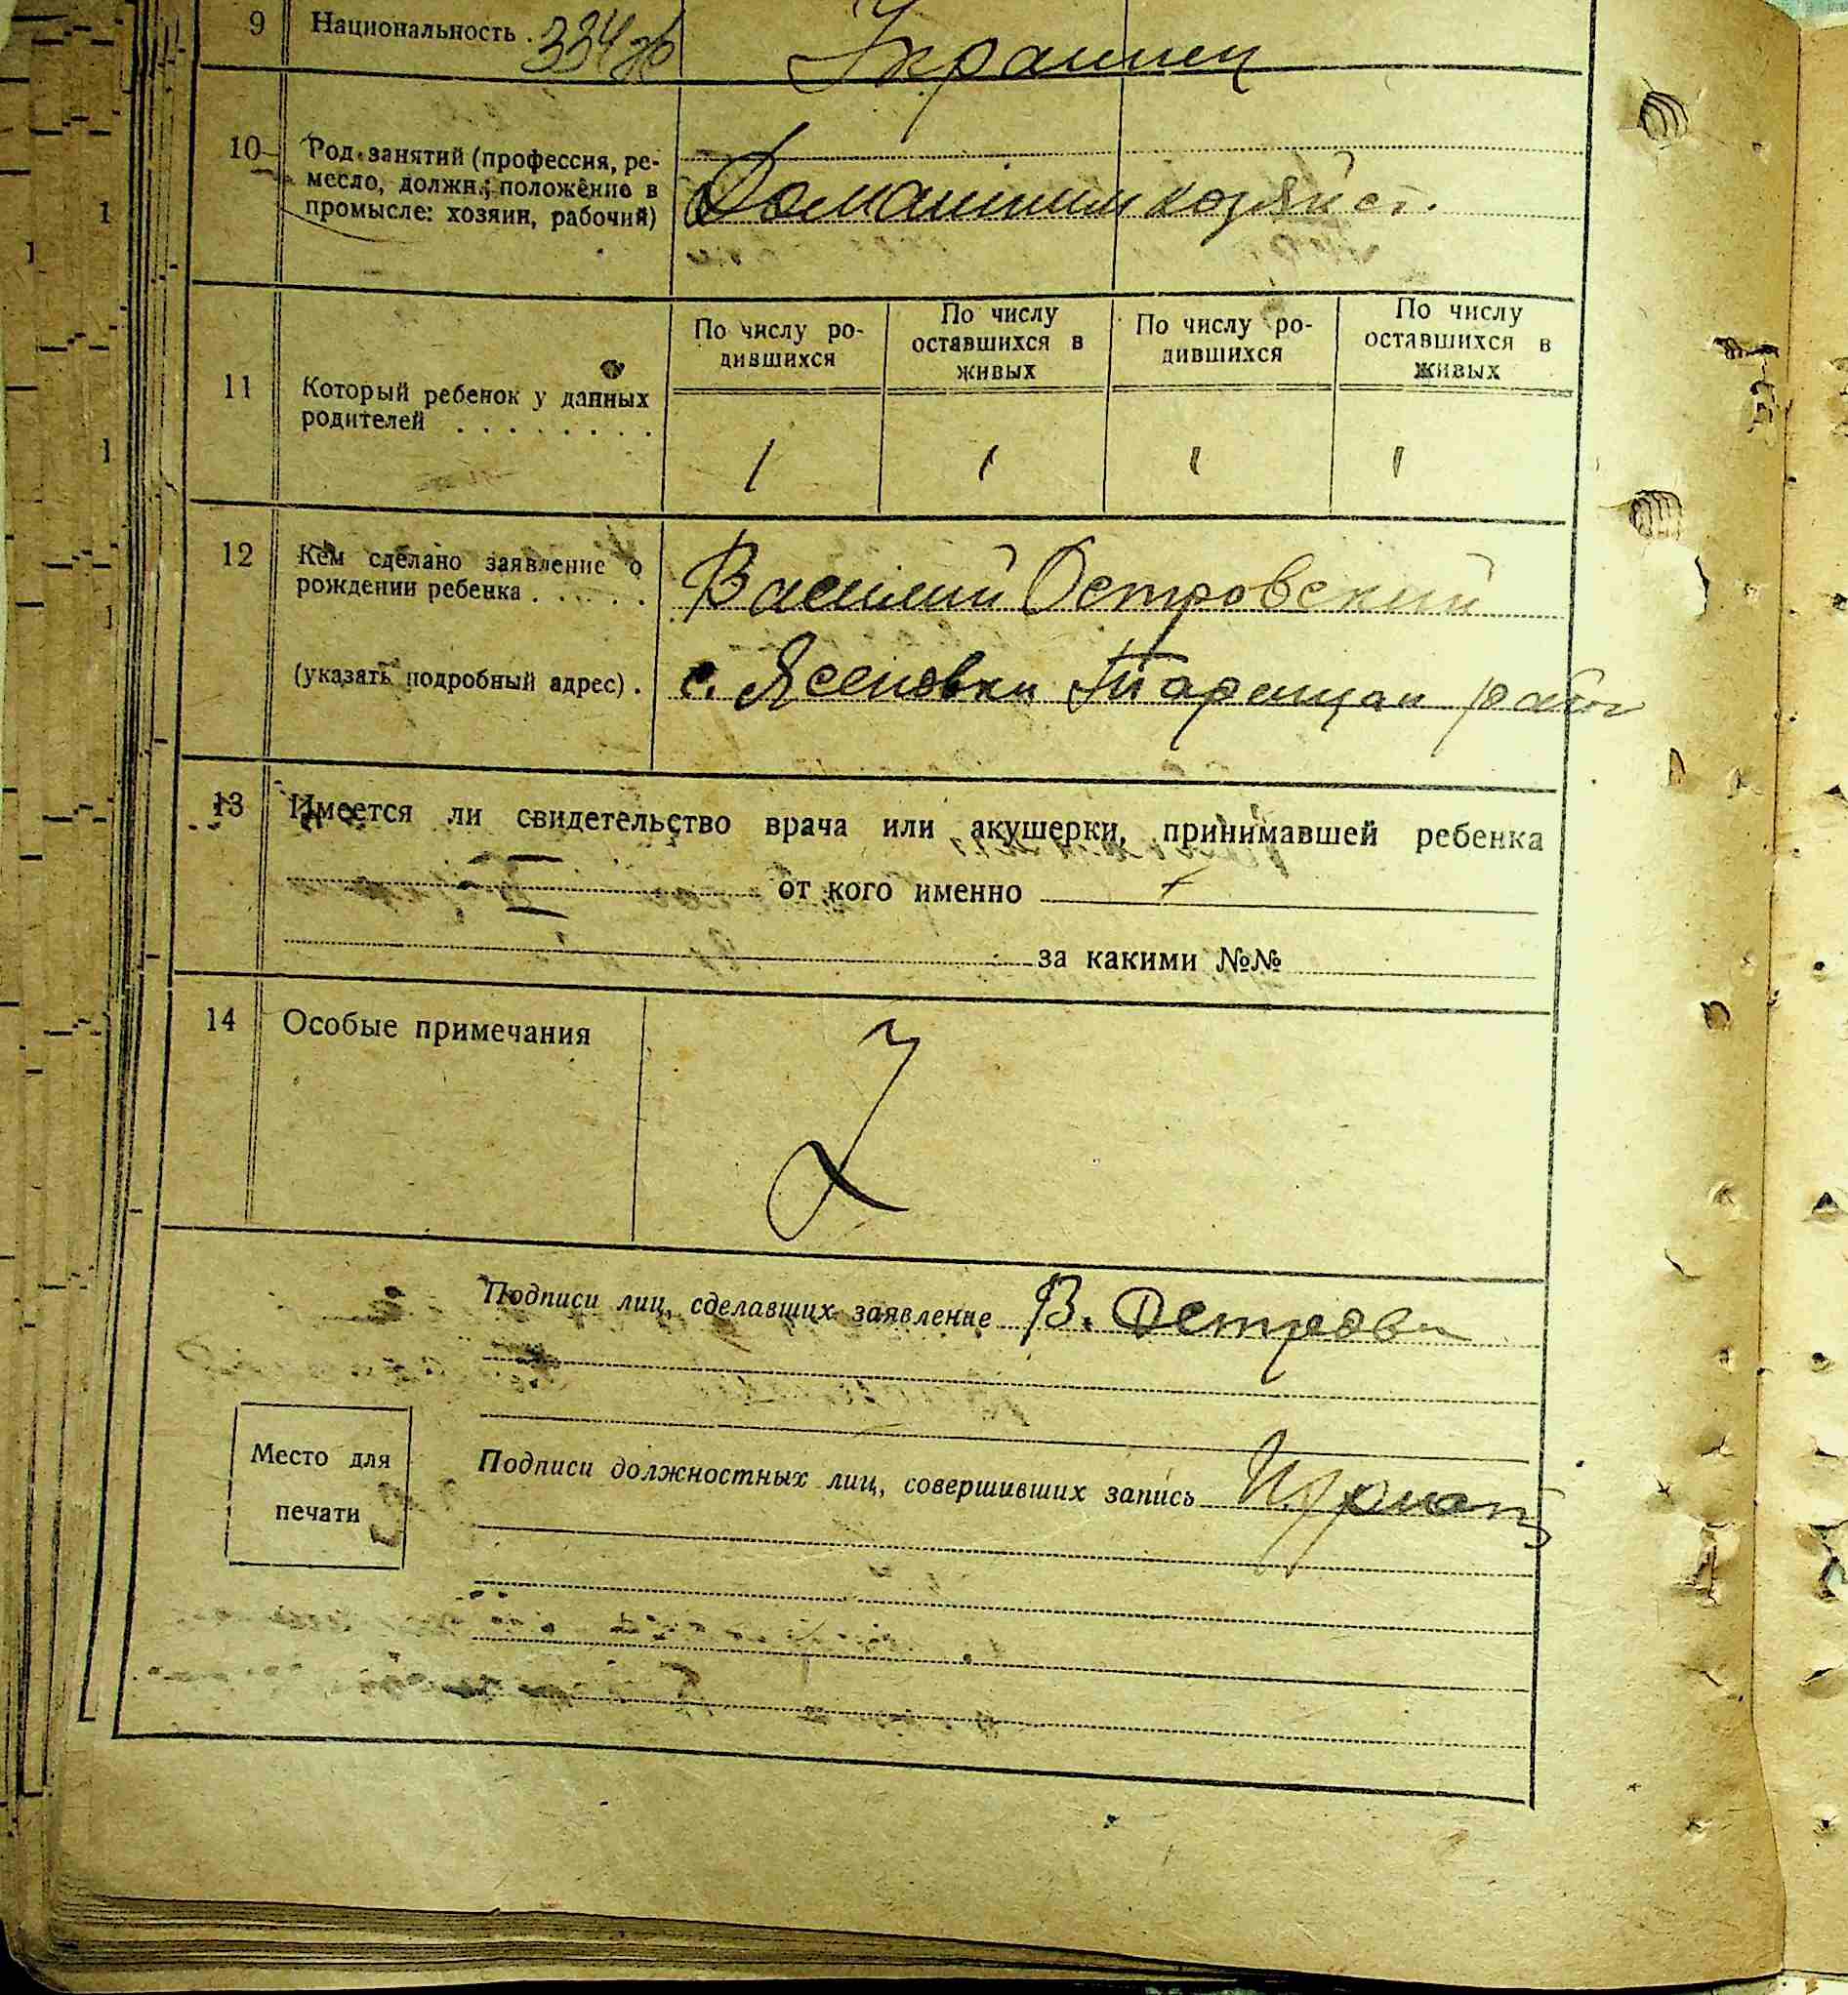 9 Национальность . 334 Украинец
10 Род занятий (профессия, ре-
месло, должн.; положение в
промысле: хозяин, рабочий)
Домашним хозяйст.
По числу ро-
дившихся
По числу
оставшихся в
живых
По числу ро-
дившихся
По числу
оставшихся в
живых
11 Который ребенок у данных
родителей . . . . . . . .
1 1 1 1
12 Кем сделано заявление о
рождении ребенка . . . . .
Василий Островский
(указать подробный адрес) . с. Ясеновки Таращан район
13 Имеется ли свидетельство врача или акушерки, принимавшей ребенка
от кого именно
за какими №№
14 Особые примечания
Подписи лиц, сделавших заявление В.
Место для
печати
Подписи должностных лиц, совершивших запись